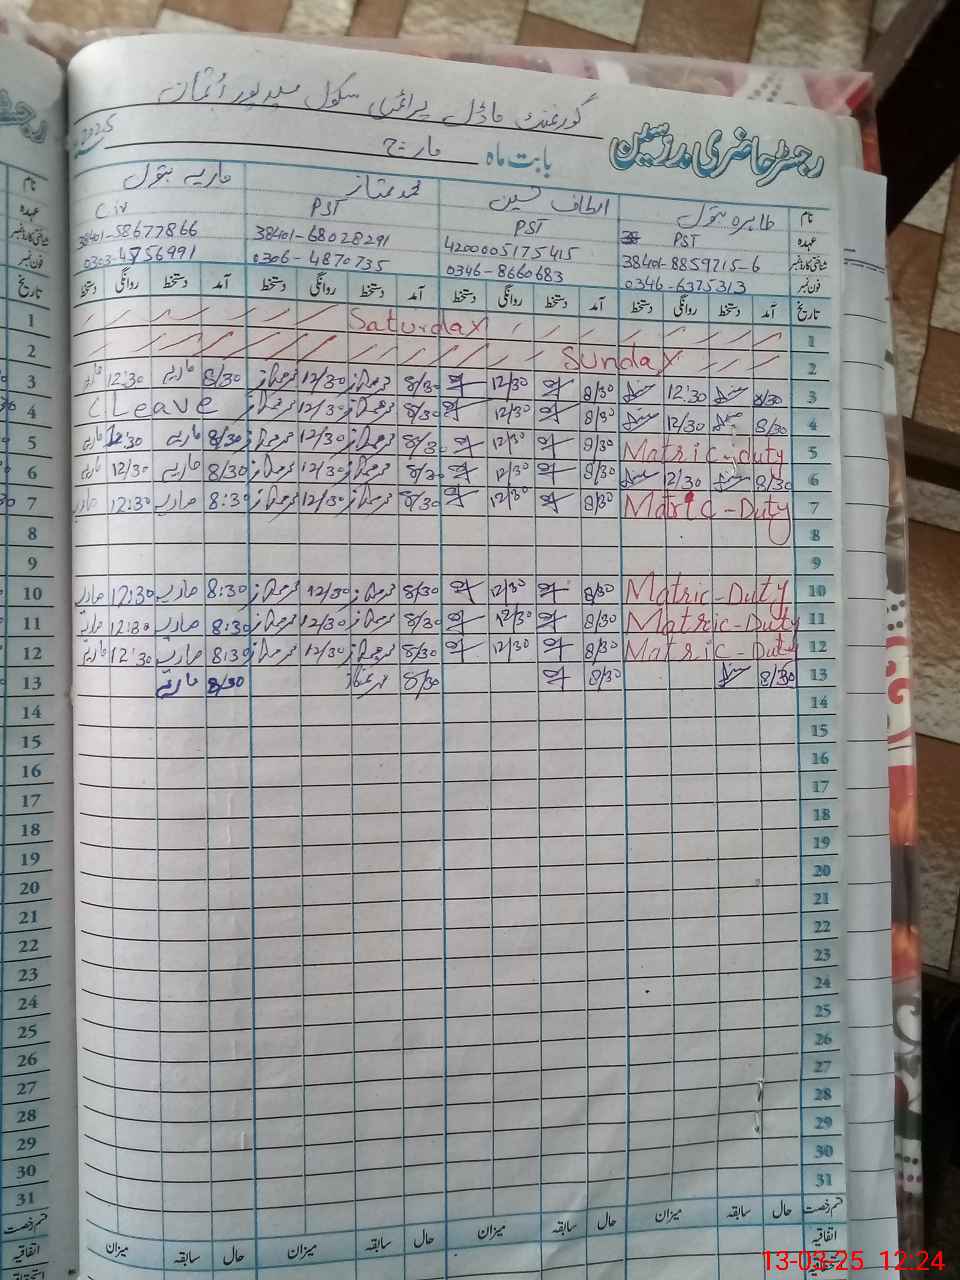 گورنمنٹ ماڈل پرائمری سکول
رجسٹر حاضری مدرسین
بابت ماہ مارچ 2025
نام طاہرہ بتول الطاف حسین محمد ممتاز ماریہ بتول
عہدہ PST PST PST Civ
شناختی کارڈ نمبر 38401-8859715-6 4200005175415 38401-68028291 38401-58677866
فون نمبر 0346-6375313 0346-8660683 0306-4870735 0303-4756991
تاریخ آمد دستخط روانگی دستخط آمد دستخط روانگی دستخط آمد دستخط روانگی دستخط آمد دستخط روانگی دستخط تاریخ
1 Saturday 1
2 Sunday 2
3 8/30 12:30 8/30 12/30 8/30 12/30 8/30 ماریہ 12:30 ماریہ 3
4 8/30 12/30 8/30 12/30 8/30 12/30 C Leave 4
5 Matric-duty 8/30 12/30 8/30 12/30 8/30 ماریہ 12:30 ماریہ 5
6 8/30 12/30 8/30 12/30 8/30 12/30 8/30 ماریہ 12/30 ماریہ 6
7 Matric-Duty 8/30 12/30 8/30 12/30 8:30 ماریہ 12:30 ماریہ 7
8 8
9 9
10 Matric-Duty 8/30 12/30 8/30 12/30 8:30 ماریہ 12:30 ماریہ 10
11 Matric-Duty 8/30 12/30 8/30 12/30 8:30 ماریہ 12:30 ماریہ 11
12 Matric-Duty 8/30 12/30 8/30 12/30 8:30 ماریہ 12:30 ماریہ 12
13 8/30 8/30 8/30 8/30 ماریہ 13
14 14
15 15
16 16
17 17
18 18
19 19
20 20
21 21
22 22
23 23
24 24
25 25
26 26
27 27
28 28
29 29
30 30
31 31
قسم رخصت حال سابقہ میزان حال سابقہ میزان حال سابقہ میزان حال سابقہ میزان قسم رخصت
اتفاقیہ اتفاقیہ
13-03-25 12:24